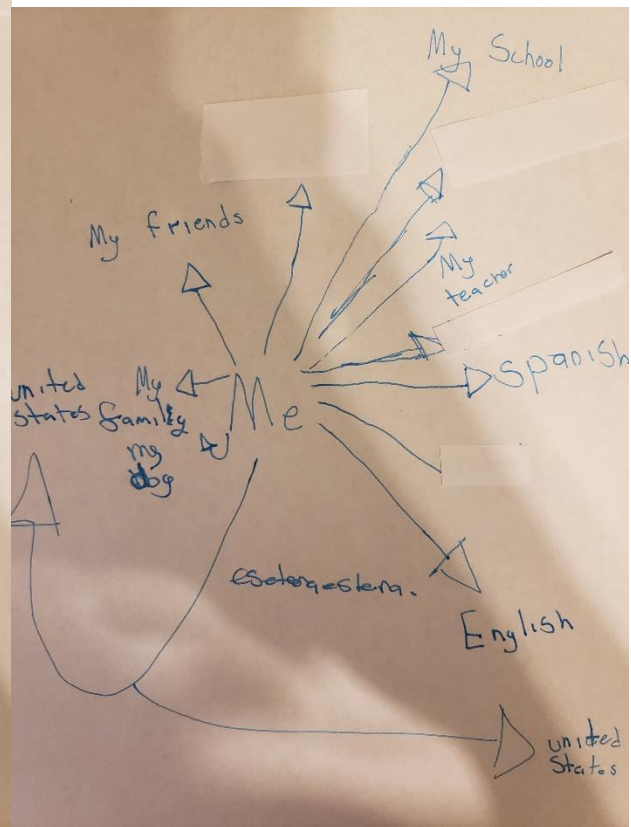 My School
My friends
My
teacher
Spanish
united
states
My
family
my
dog
Me
English
united
States